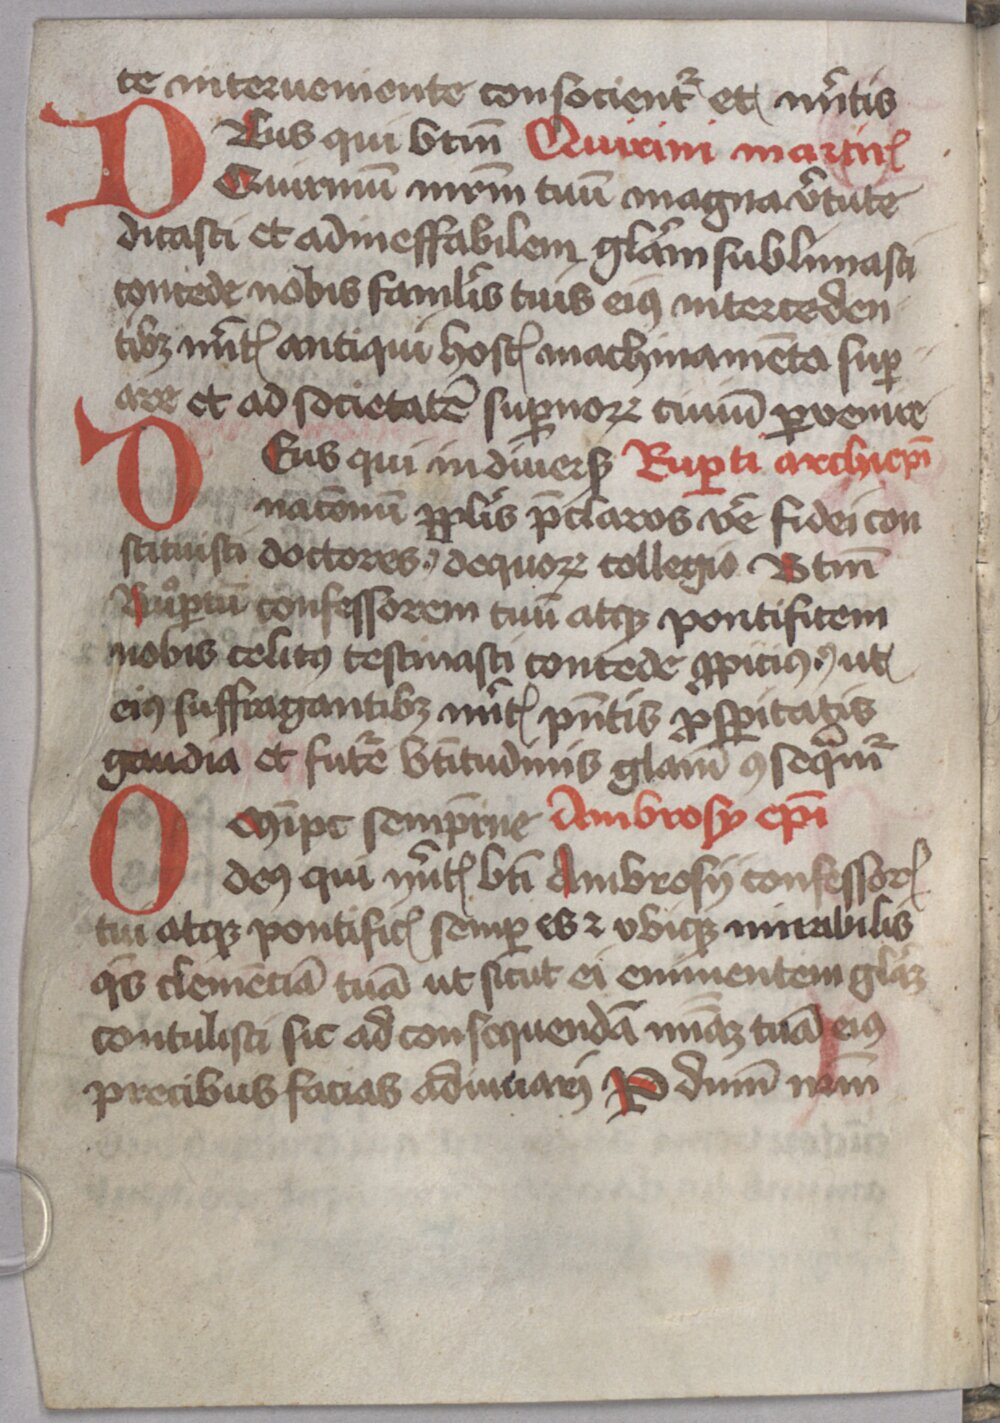 te interueniente consocientr̄ et mr̄itis
DEus qui btm̄ Quirini martir̄
Quirinū mr̄em tuū magna v̄tute
ditasti et ad ineffabilem glāꝫ sublimasti
concede nobis famul̄is tuis eiꝰ interceden
tibꝫ mr̄itꝭ antiqui hostꝭ machinamēta suꝑ
are et ad societatē suꝑnoꝝ ciuiū ꝑuenire
DEus qui in diuersꝭ Ruꝑti archiep̄i
nacōnū pp̄lis p̄claros ve᷑ fidei con
stituisti doctores / de quoꝝ collegio Btm̄
Ruoꝑtū confessorem tuū atqꝫ pontificem
nobis celitꝰ testinasti concede ꝓpiciꝰ / ut
eiꝰ suffragantibꝫ mr̄itꝭ pn̄tis ꝓsꝑitatis
gaudia et futr̄e bt̄itudinis glām ꝯseqᵃmr̄
Omīpt̄ semp̄rne Ambrosy ep̄i
deꝰ qui mr̄itꝭ bt̄i Ambrosij confessorꝭ
tui atqꝫ pontificꝭ semꝑ es ⁊ vbiqꝫ mirabilis
qs̄ clemēciā tuā ut sicut ei eminentem glāꝫ
contulisti sic ad consequendā mīaꝫ tuā eiꝰ
precibus facias adiuuari P dnm̄ nr̄m